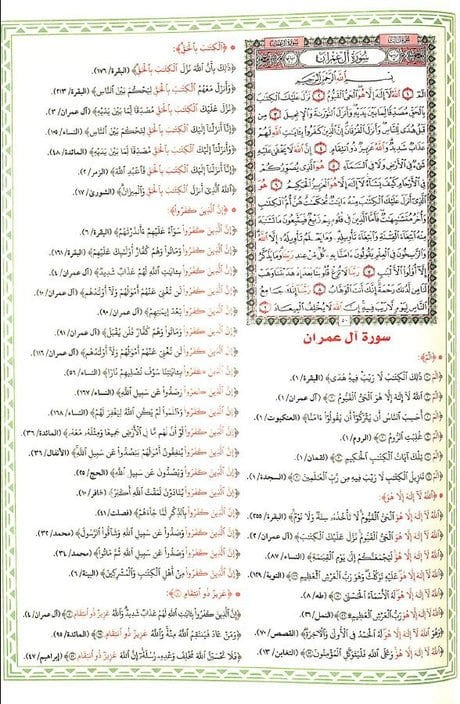 سورة آل عمران
بسم الله الرحمن الرحيم
الٓمٓ ١ الله لا إله إلا هو الحي القيوم ٢ نزل عليك الكتب
بالحق مصدقا لما بين يديه وأنزل التورىة والإنجيل ٣ من
قبل هدى للناس وأنزل الفرقان إن الذين كفروا بـايت الله لهم
عذاب شديد والله عزيز ذو انتقام ٤ إن الله لا يخفى عليه
شيء في الأرض ولا في السماء ٥ هو الذي يصوركم
في الأرحام كيف يشاء لا إله إلا هو العزيز الحكيم ٦ هو
الذي أنزل عليك الكتب منه ءايت محكمت هن أم الكتب
وأخر متشبهت فأما الذين في قلوبهم زيغ فيتبعون ما تشبه
منه ابتغاء الفتنة وابتغاء تأويله وما يعلم تأويله إلا الله
والراسخون في العلم يقولون ءامنا به كل من عند ربنا وما يذكر
إلا أولوا الألبب ٧ ربنا لا تزغ قلوبنا بعد إذ هديتنا وهب
لنا من لدنك رحمة إنك أنت الوهاب ٨ ربنا إنك جامع
الناس ليوم لا ريب فيه إن الله لا يخلف الميعاد ٩
٥٠
سورة آل عمران
* ﴿الٓمٓ﴾:
﴿الٓمٓ ١ ذلك الكتب لا ريب فيه هدى﴾ (البقرة/١).
﴿الٓمٓ ١ الله لا إله إلا هو الحي القيوم﴾ (آل عمران/١).
﴿الٓمٓ ١ أحسب الناس أن يتركوا أن يقولوا ءامنا﴾ (العنكبوت/١).
﴿الٓمٓ ١ غلبت الروم﴾ (الروم/١).
﴿الٓمٓ ١ تلك ءايت الكتب الحكيم﴾ (لقمان/١).
﴿الٓمٓ ١ تنزيل الكتب لا ريب فيه من رب العلمين﴾ (السجدة/١).
* ﴿الله لا إله إلا هو﴾:
﴿الله لا إله إلا هو الحي القيوم لا تأخذه سنة ولا نوم﴾ (البقرة/٢٥٥).
﴿الله لا إله إلا هو الحي القيوم ٢ نزل عليك الكتب﴾ (آل عمران/٢).
﴿الله لا إله إلا هو ليجمعنكم إلى يوم القيمة﴾ (النساء/٨٧).
﴿الله لا إله إلا هو عليه توكلت وهو رب العرش العظيم﴾ (التوبة/١٢٩).
﴿الله لا إله إلا هو له الأسماء الحسنى﴾ (طه/٨).
﴿الله لا إله إلا هو رب العرش العظيم﴾ (النمل/٢٦).
﴿وهو الله لا إله إلا هو له الحمد في الأولى والأخرة﴾ (القصص/٧٠).
﴿الله لا إله إلا هو وعلى الله فليتوكل المؤمنون﴾ (التغابن/١٣).
* ﴿الكتب بالحق﴾:
﴿ذلك بأن الله نزل الكتب بالحق﴾ (البقرة/١٧٦).
﴿وأنزل معهم الكتب بالحق ليحكم بين الناس﴾ (البقرة/٢١٣).
﴿نزل عليك الكتب بالحق مصدقا لما بين يديه﴾ (آل عمران/٣).
﴿إنا أنزلنا إليك الكتب بالحق لتحكم بين الناس﴾ (النساء/١٠٥).
﴿وأنزلنا إليك الكتب بالحق مصدقا لما بين يديه﴾ (المائدة/٤٨).
﴿إنا أنزلنا إليك الكتب بالحق﴾ (الزمر/٢).
﴿الله الذي أنزل الكتب بالحق والميزان﴾ (الشورى/١٧).
* ﴿إن الذين كفروا﴾:
﴿إن الذين كفروا سواء عليهم ءأنذرتهم﴾ (البقرة/٦).
﴿إن الذين كفروا وماتوا وهم كفار أولئك عليهم﴾ (البقرة/١٦١).
﴿إن الذين كفروا بـايت الله لهم عذاب شديد﴾ (آل عمران/٤).
﴿إن الذين كفروا لن تغني عنهم أموالهم ولا أولدهم﴾ (آل عمران/١٠).
﴿إن الذين كفروا بعد إيمنهم﴾ (آل عمران/٩٠).
﴿إن الذين كفروا وماتوا وهم كفار فلن يقبل﴾ (آل عمران/٩١).
﴿إن الذين كفروا لن تغني عنهم أموالهم ولا أولدهم﴾ (آل عمران/١١٦).
﴿إن الذين كفروا بـايتنا سوف نصليهم نارا﴾ (النساء/٥٦).
﴿إن الذين كفروا وصدوا عن سبيل الله﴾ (النساء/١٦٧).
﴿إن الذين كفروا وظلموا لم يكن الله ليغفر لهم﴾ (النساء/١٦٨).
﴿إن الذين كفروا لو أن لهم ما في الأرض جميعا ومثله معه﴾ (المائدة/٣٦).
﴿إن الذين كفروا ينفقون أمولهم ليصدوا عن سبيل الله﴾ (الأنفال/٣٦).
﴿إن الذين كفروا ويصدون عن سبيل الله﴾ (الحج/٢٥).
﴿إن الذين كفروا ينادون لمقت الله أكبر﴾ (غافر/١٠).
﴿إن الذين كفروا بالذكر لما جاءهم﴾ (فصلت/٤١).
﴿إن الذين كفروا وصدوا عن سبيل الله وشاقوا الرسول﴾ (محمد/٣٢).
﴿إن الذين كفروا وصدوا عن سبيل الله ثم ماتوا﴾ (محمد/٣٤).
﴿إن الذين كفروا من أهل الكتب والمشركين﴾ (البينة/٦).
* ﴿عزيز ذو انتقام﴾:
﴿إن الذين كفروا بـايت الله لهم عذاب شديد والله عزيز ذو انتقام﴾ (آل عمران/٤).
﴿ومن عاد فينتقم الله منه والله عزيز ذو انتقام﴾ (المائدة/٩٥).
﴿فلا تحسبن الله مخلف وعده رسله إن الله عزيز ذو انتقام﴾ (إبراهيم/٤٧).